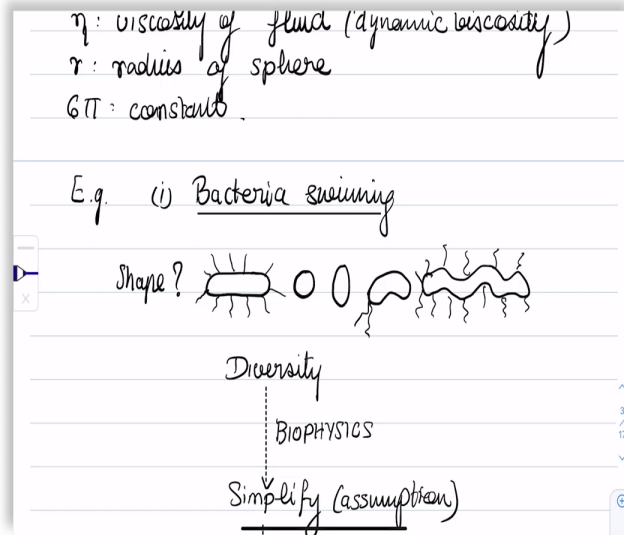 η: viscosity of fluid (dynamic viscosity)
r: radius of sphere
6π: constant.
E.g. (i) Bacteria swimming
Shape?
Diversity
BIOPHYSICS
Simplify (assumption)
3
/
17